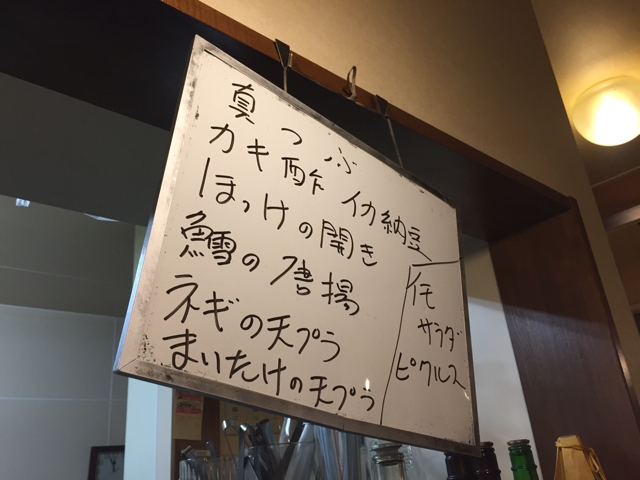 真つぶ
カキ酢 イカ納豆
ほっけの開き
鱈の唐揚
ネギの天プラ
まいたけの天プラ
イモ
サラダ
ピクルス